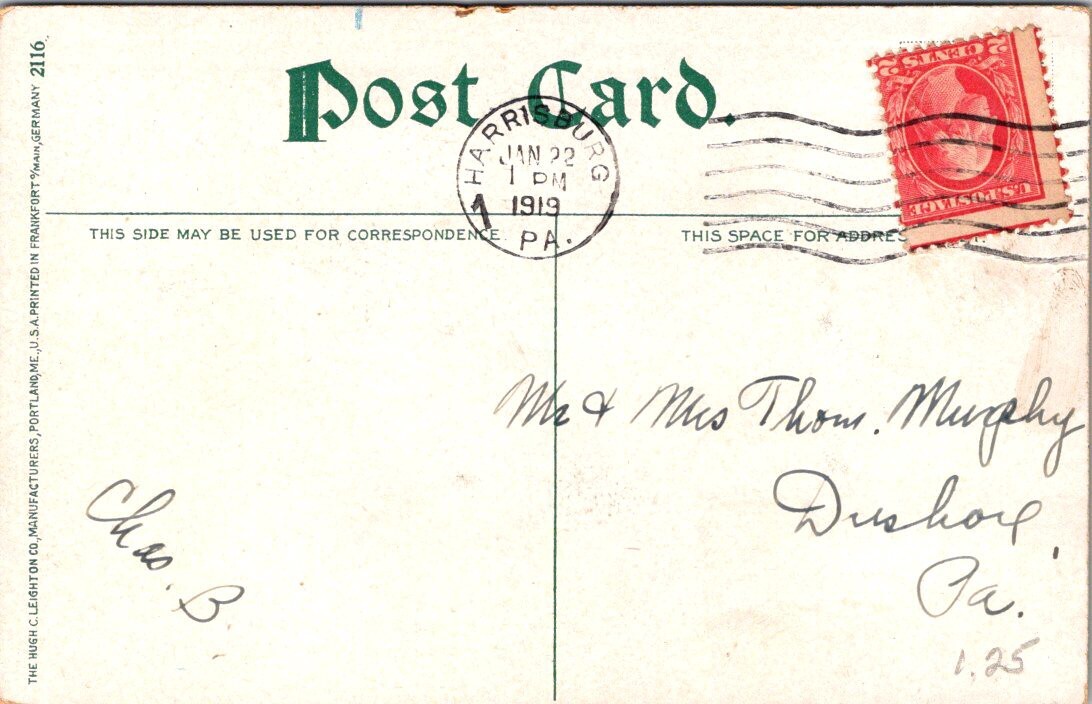 Post Card.
HARRISBURG
JAN 22
1 PM
1919
1
PA.
2 CENTS 2
U.S. POSTAGE
THIS SIDE MAY BE USED FOR CORRESPONDENCE.
THIS SPACE FOR ADDRES
Mr & Mrs Thom. Murphy
Dushore,
Pa.
1.25
Chas. B.
THE HUGH C. LEIGHTON CO., MANUFACTURERS, PORTLAND, ME., U.S.A. PRINTED IN FRANKFORT o/MAIN, GERMANY 2116